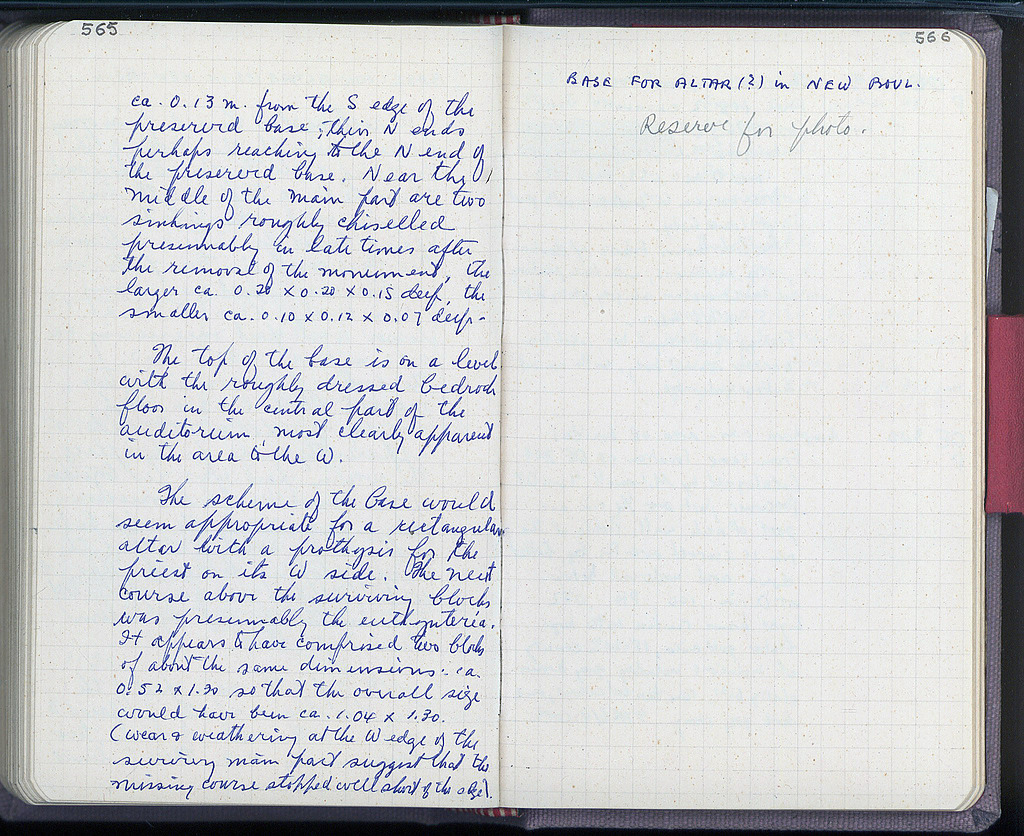 565
ca. 0.13 m. from the S edge of the
preserved base, their N ends
perhaps reaching to the N end of
the preserved base. Near the
middle of the main part are two
sinkings roughly chiselled
presumably in late times after
the removal of the monument, the
larger ca. 0.20 x 0.20 x 0.15 deep, the
smaller ca. 0.10 x 0.12 x 0.07 deep.
The top of the base is on a level
with the roughly dressed bedrock
floor in the central part of the
auditorium, most clearly apparent
in the area to the W.
The scheme of the base would
seem appropriate for a rectangular
altar with a prothysis for the
priest on its W side. The next
course above the surviving blocks
was presumably the euthynteria.
It appears to have comprised two blocks
of about the same dimensions: ca.
0.52 x 1.30 so that the overall size
would have been ca. 1.04 x 1.30.
(wear & weathering at the W edge of the
surviving main part suggest that the
missing course stopped well short of the edge).
566
BASE FOR ALTAR (?) in NEW BOUL.
Reserve for photo.